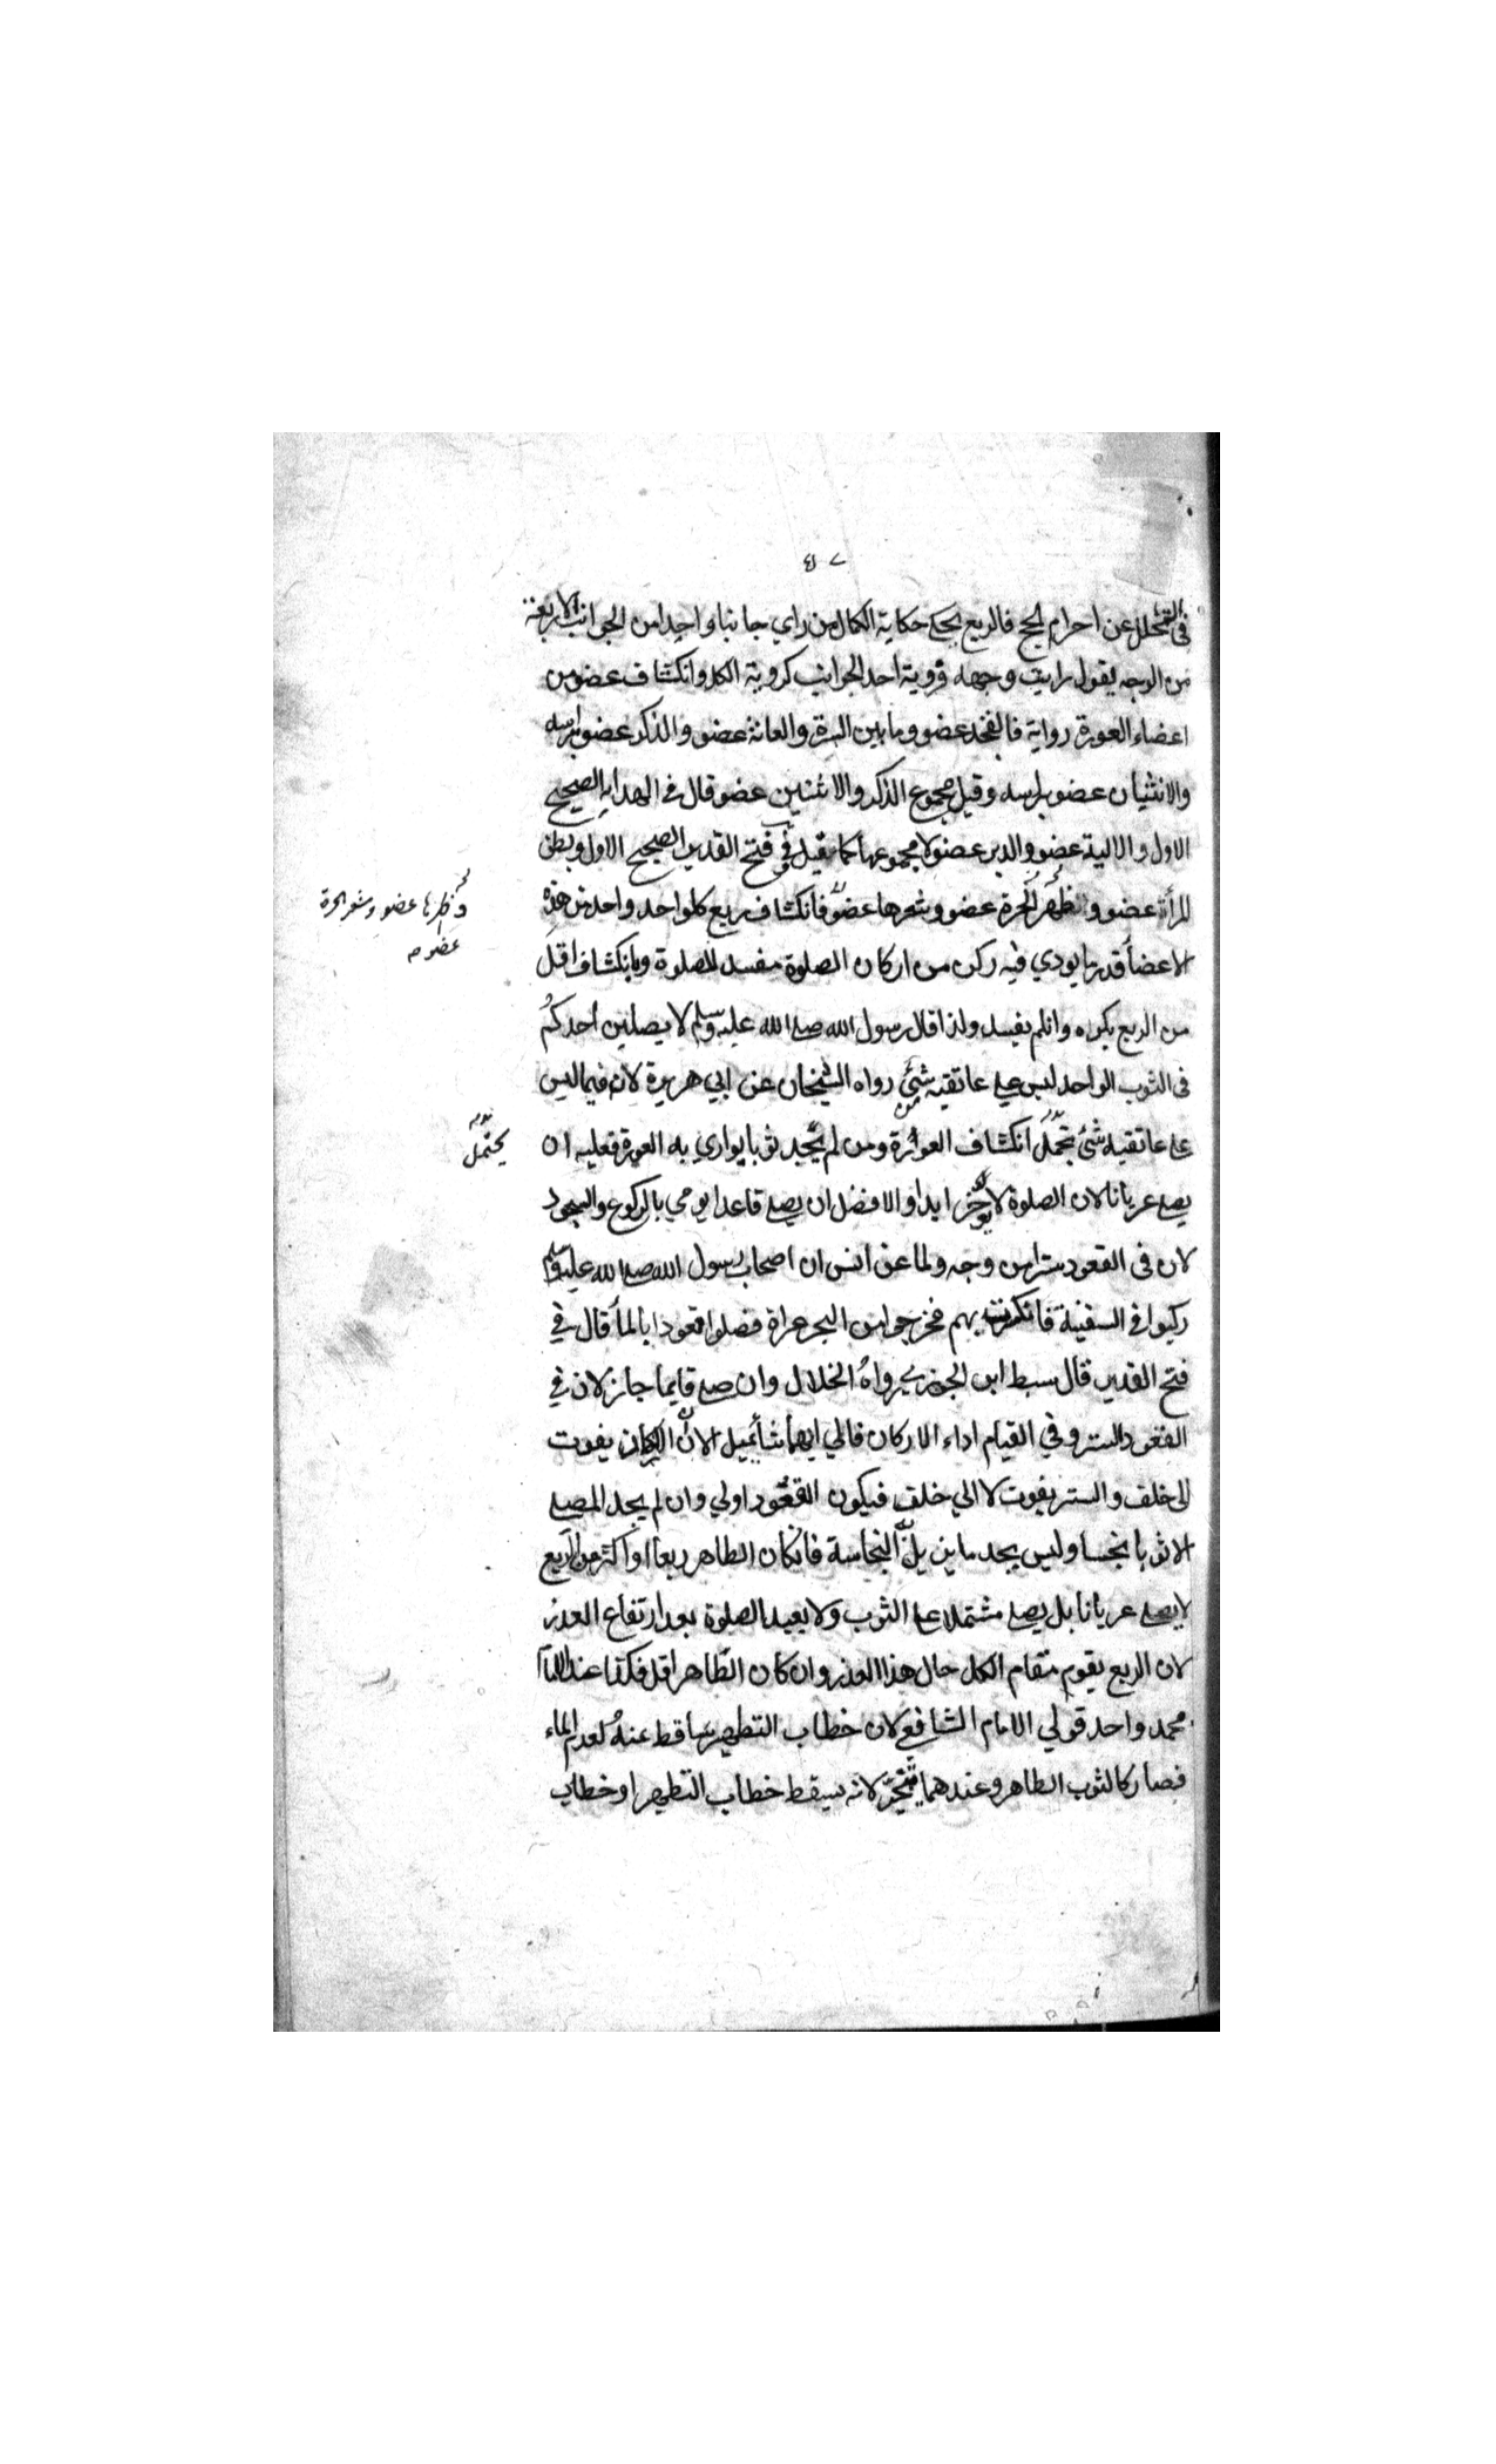 ٤٧
فى التحلل عن احرام الحج فالربع يحكى حكاية الكمال من راي جانبا واحدا من الجوانب الاربعة
من الوجه يقول رايت وجهه فروية احد الجوانب كروية الكل وانكشاف عضو من
اعضاء العورة رواية فالفخذ عضو وما بين السرة والعانة عضو والذكر عضو براسه
والانثيان عضو براسه وقيل مجموع الذكر والانثيين عضو قال فى الهداية الصحيح
الاول والالية عضو والدبر عضو لا مجموعهما كما قيل في فتح القدير الصحيح الاول وبطن
المرأة عضو وظهر الحرة عضو وشعرها عضو فانكشاف ربع كلواحد واحد من هذه
الاعضأ قدر ما يودي فيه ركن من اركان الصلوة مفسد للصلوة وبانكشاف اقل
من الربع يكره وانلم يفسد ولذا قال رسول الله صلى الله عليه وسلم لا يصلين احدكم
فى الثوب الواحد ليس على عاتقيه شئ رواه الشيخان عن ابي هريرة لان فيما ليس
على عاتقيه شئ يحتمل انكشاف العورة ومن لم يجد ثوبا يواري به العورة فعليه ان
يصلى عريانا لان الصلوة لا يوخر ابدا والافضل ان يصلى قاعدا يومي بالركوع والسجود
لان فى القعود ستر من وجه ولما عن انس ان اصحاب رسول الله صلى الله عليه وسلم
ركبوا في السفينة فانكسرت بهم فخرجوا من البحر عراة فصلوا قعودا بايمأ قال في
فتح القدير قال سبط ابن الجوزي رواه الخلال وان صلى قايما جاز لان في
القعود الستر وفي القيام اداء الاركان فالي ايهما شأ يميل الا ان الاركان يفوت
الى خلف والستر يفوت لا الي خلف فيكون القعود اولي وان لم يجد المصلى
الا ثوبا نجسا وليس يجد ما يزيل النجاسة فانكان الطاهر ربعا او اكثر من الربع
لا يصلى عريانا بل يصلى مشتملا على الثوب ولا يعيد الصلوة بعد ارتفاع العذر
لان الربع يقوم مقام الكل حال هذا العذر وان كان الطاهر اقل فكذا عند الامام
محمد واحد قولي الامام الشافعي لان خطاب التطهير ساقط عنه لعدم الماء
فصار كالثوب الطاهر وعندهما يتخير لانه يسقط خطاب التطهير او خطاب
وظهرها عضو وشعر الحرة
عضو
يحتمل